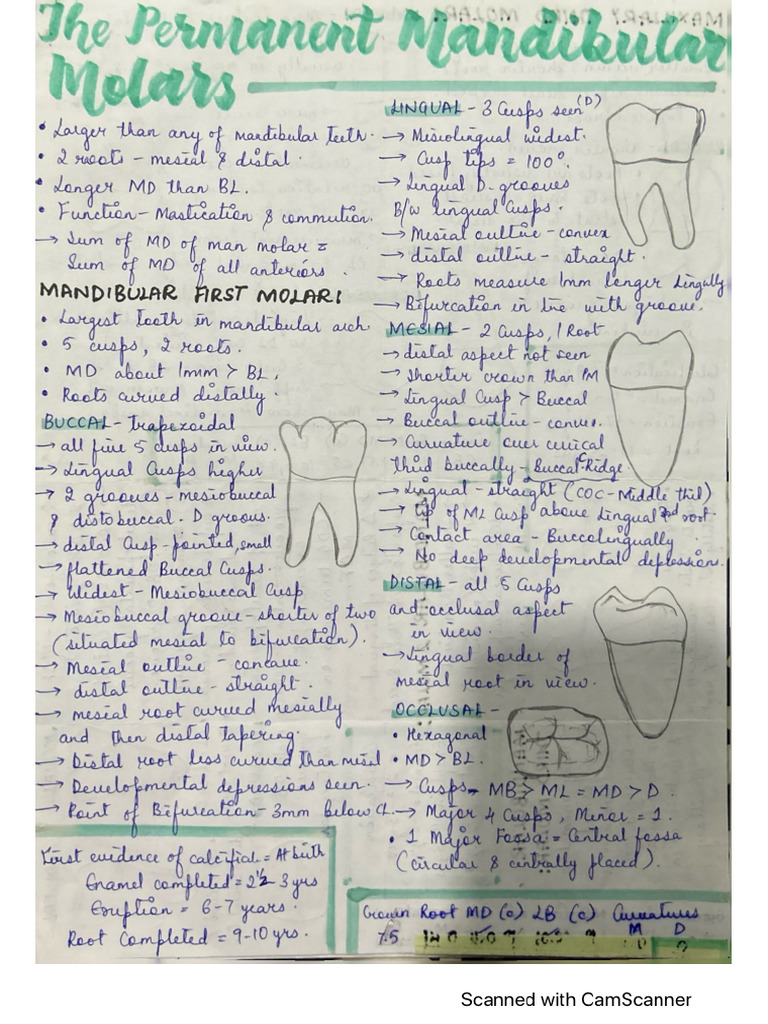 The Permanent Mandibular
Molars
• Larger than any of mandibular teeth.
• 2 roots - mesial & distal.
• Longer MD than BL.
• Function - Mastication & commution.
→ Sum of MD of man molar =
Sum of MD of all anteriors.
MANDIBULAR FIRST MOLAR:
• Largest tooth in mandibular arch.
• 5 cusps, 2 roots.
• MD about 1mm > BL.
• Roots curved distally.
BUCCAL - trapezoidal
→ all five 5 cusps in view.
→ Lingual Cusps higher
→ 2 grooves - mesiobuccal
& distobuccal. D grooves.
→ distal Cusp - pointed, small
→ flattened Buccal Cusps.
→ Widest - Mesiobuccal Cusp
→ Mesiobuccal groove - shorter of two
(situated mesial to bifurcation).
→ Mesial outline - concave.
→ distal outline - straight.
→ mesial root curved mesially
and then distal tapering.
→ Distal root less curved than mesial
→ Developmental depressions seen.
→ Point of Bifurcation - 3mm below CL.
First evidence of calcificat. = At birth
Enamel completed = 2 1/2 - 3 yrs
Eruption = 6-7 years.
Root Completed = 9-10 yrs.
LINGUAL - 3 Cusps seen (D)
→ Mesiolingual widest.
→ Cusp tips = 100°.
→ Lingual D-grooves
B/w lingual Cusps.
→ Mesial outline - convex
→ distal outline - straight.
→ Roots measure 1mm longer lingually
→ Bifurcation in line with groove.
MESIAL - 2 Cusps, 1 Root
→ distal aspect not seen
→ Shorter crown than PM
→ Lingual Cusp > Buccal
→ Buccal outline - convex.
→ Curvature over cervical
third buccally - Buccal C Ridge.
→ Lingual - straight (COC - Middle third)
→ tip of ML Cusp above Lingual root.
→ Contact area - Buccolingually
→ No deep developmental depression.
DISTAL - all 5 Cusps
and occlusal aspect
in view.
→ Lingual border of
mesial root in view.
OCCLUSAL -
• Hexagonal
• MD > BL.
→ Cusps - MB > ML = MD > D.
→ Major 4 Cusps, Minor = 1.
• 1 Major Fossa = Central fossa
(circular & centrally placed).
Crown Root MD (c) LB (c) Curvatures
M D
7.5
Scanned with CamScanner